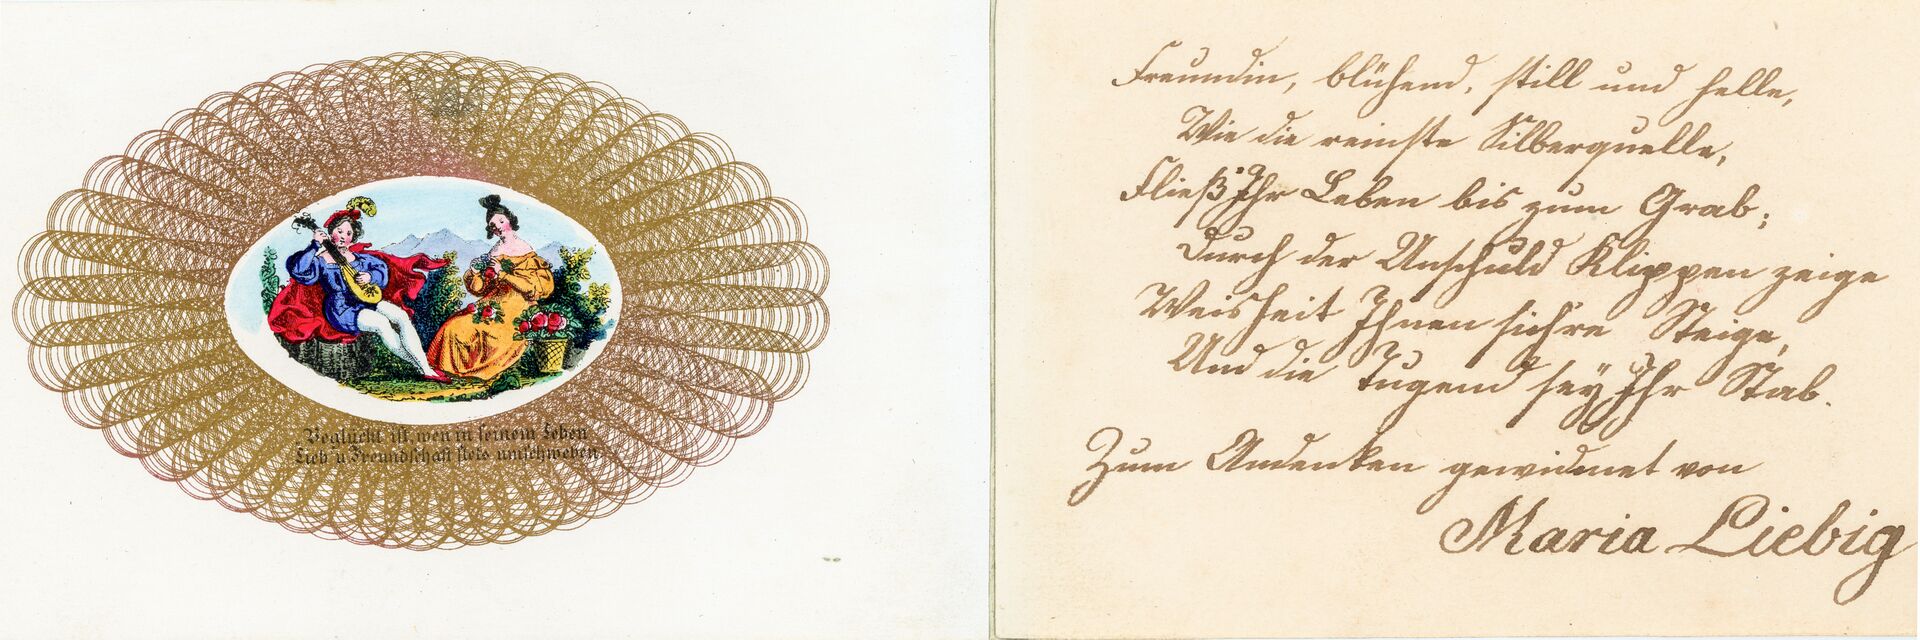 Beglückt ist, wen in seinem Leben
Lieb' u Freundschaft stets umschweben
Freundin, blühend, still und helle,
Wie die reinste Silberquelle,
Fließ' Ihr Leben bis zum Grab;
Durch der Unschuld Klippen zeige
Weisheit Ihnen sich're Steige,
Und die Tugend sey Ihr Stab.
Zum Andenken gewidmet von
Maria Liebig